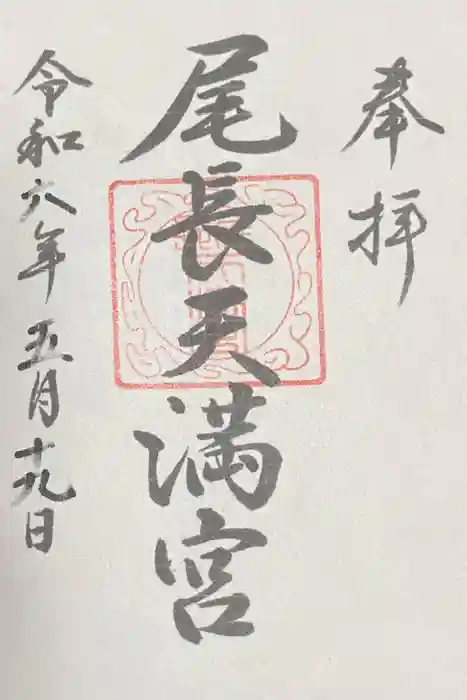 奉拝
尾長天満宮
令和六年五月十九日